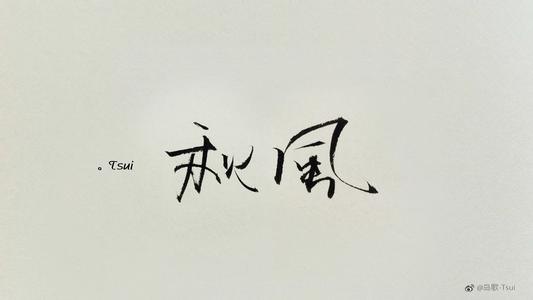 。Tsui
秋風
@岛歌-Tsui